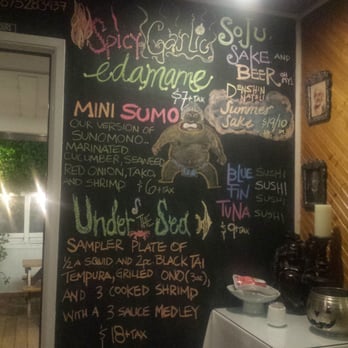 Spicy Garlic
edamame
$7+TAX
SOJU,
SAKE AND
BEER OH MY!
DENSHIN
Summer
Sake $19/10
MINI SUMO
OUR VERSION OF
SUNOMONO-
MARINATED
CUCUMBER, SEAWEED
RED ONION, TAKO
AND SHRIMP $6+TAX
BLUE SUSHI
TIN SUSHI
TUNA SUSHI
$9+TAX
Under the Sea
SAMPLER PLATE OF
1/2 A SQUID AND 2PC BLACK TAI
TEMPURA, GRILLED ONO (3oz),
AND 3 COOKED SHRIMP
WITH A 3 SAUCE MEDLEY
$18+TAX